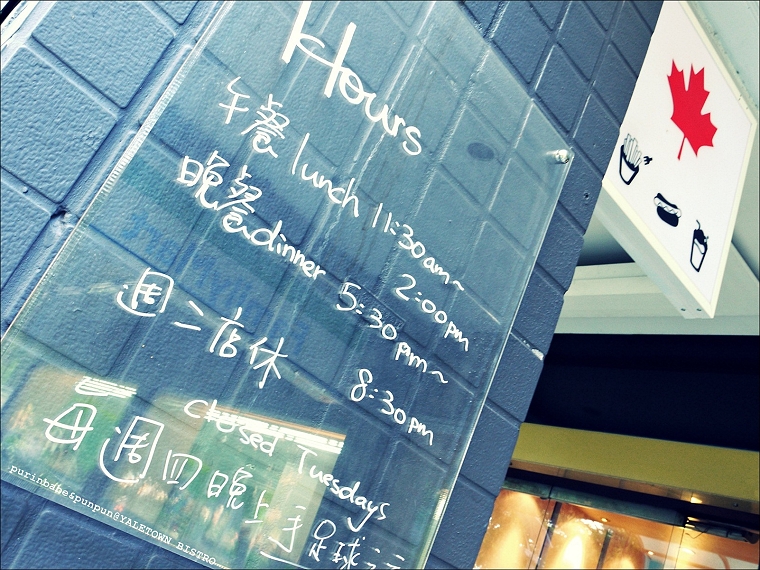 Hours
午餐 lunch 11:30am~
2:00pm
晚餐dinner 5:30pm~
8:30pm
週二店休
closed Tuesdays
每週四晚上手足球之
purinbabe5punpun@YALETOWN BISTRO